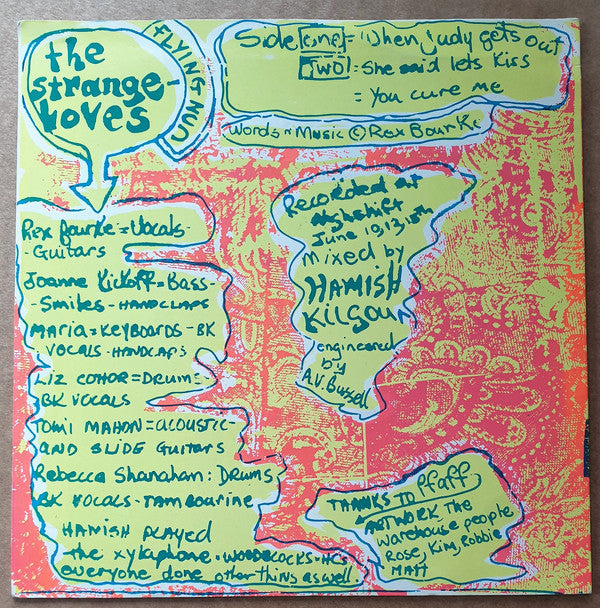 the
strange-
Loves
FLYING NUN
Side one = When judy gets out
TWO = She said lets Kiss
= You cure me
Words n Music © Rex Bourke
Rex Bourke = Vocals -
- Guitars
Joanne Kickoff = Bass -
- Smiles - HANDCLAPS
MARIA = KEYBOARDS - BK
VOCALS - HANDCLAPS
LIZ COHOR = DRUMS -
BK VOCALS
TOMI MAHON = ACOUSTIC -
AND SLIDE GUITARS
Rebecca Shanahan : DRUMS
BK VOCALS - TAMBOURINE
HAMISH PLAYED
the xylaphone - WOODBLOCKS - HCS
everyone done other things as well.
Recorded at
Nightshift
June 12, 13, 15th
Mixed by
HAMISH
KILGOUR
engineered
by
A.V. Bussell
THANKS TO Pfaff
ARTWORK, The
warehouse people
Rose, King, Robbie
MATT